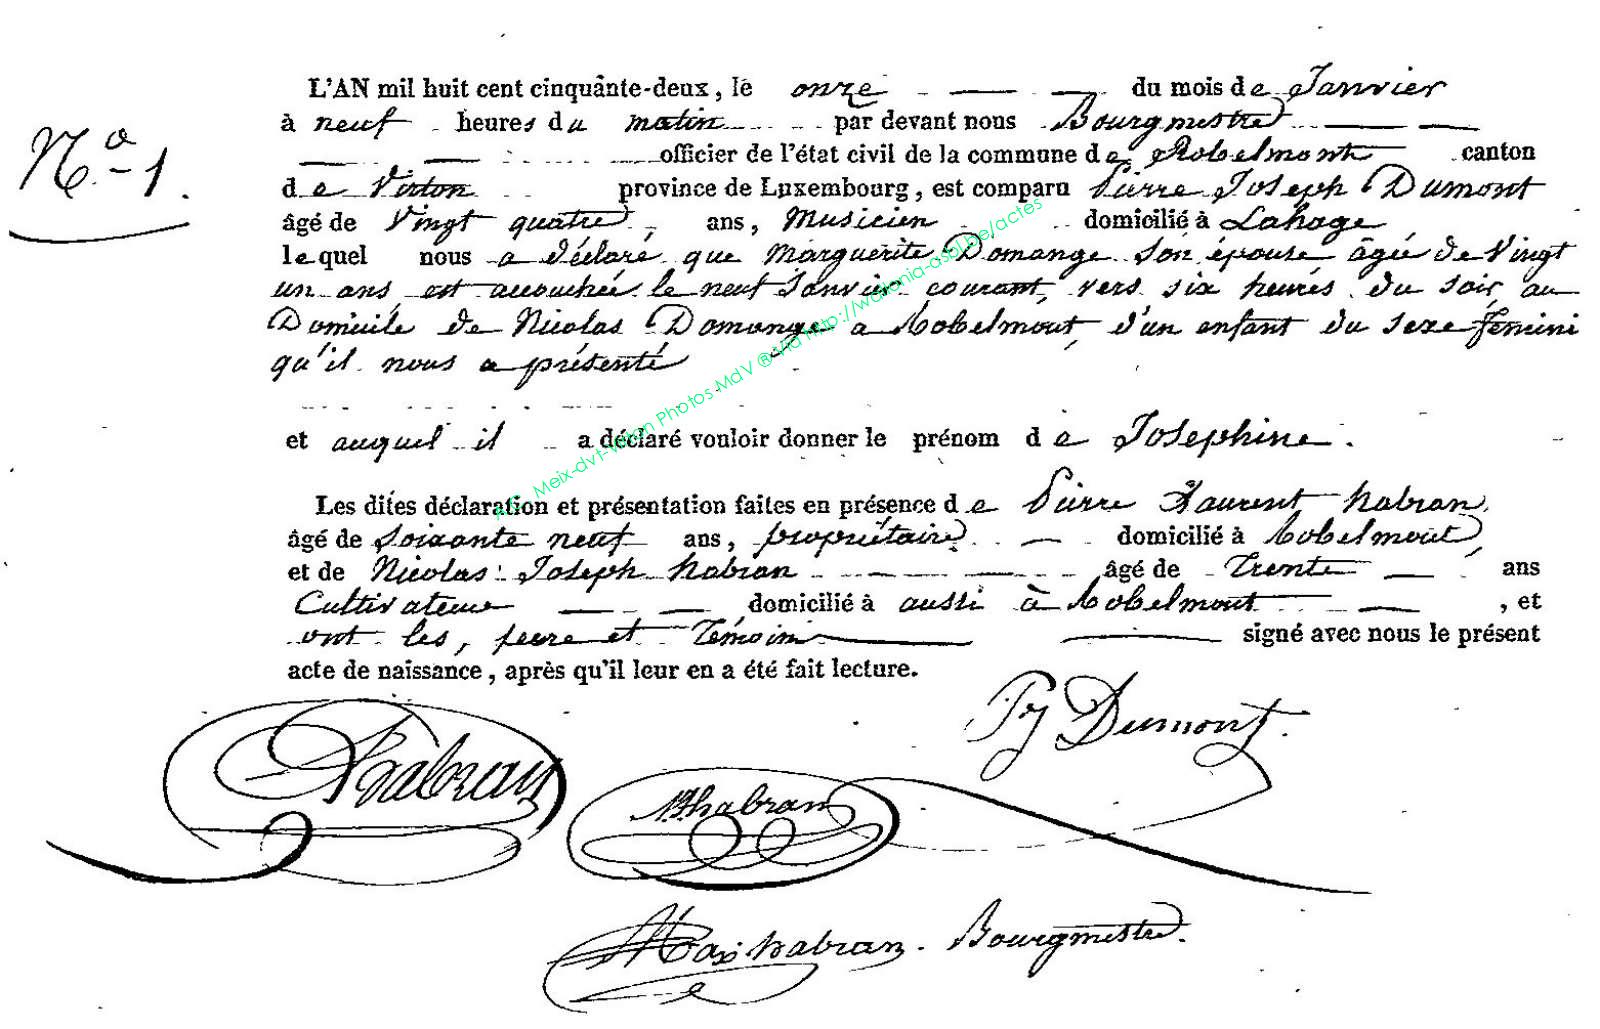 L'AN mil huit cent cinquante-deux, le onze du mois de Janvier
N.o 1.
à neuf heures du matin par devant nous Bourgmestre
officier de l'état civil de la commune de Robelmont canton
de Virton province de Luxembourg, est comparu Pierre Joseph Dumont
âgé de Vingt quatre ans, Musicien domicilié à Lahage
lequel nous a déclaré que Marguerite Domange son épouse âgée de Vingt
un ans est accouchée le neuf Janvier courant, vers six heures du soir au
Domicile de Nicolas Domange a Robelmont, d'un enfant du sexe fémini
qu'il nous a présenté
et auquel il a déclaré vouloir donner le prénom de Josephine.
Les dites déclaration et présentation faites en présence de Pierre Laurent habran,
âgé de Soixante neuf ans, propriétaire domicilié à Robelmont,
et de Nicolas Joseph habran âgé de Trente ans
Cultivateur domicilié à aussi à Robelmont, et
ont les, peere et Témoin signé avec nous le présent
acte de naissance, après qu'il leur en a été fait lecture.
PJ Dumont.
habran
NJ habran
Max habran. Bourgmestre.
AG Meix-dvt-Virton Photos MdV ® Via http://wallonia-asbl.be/actes